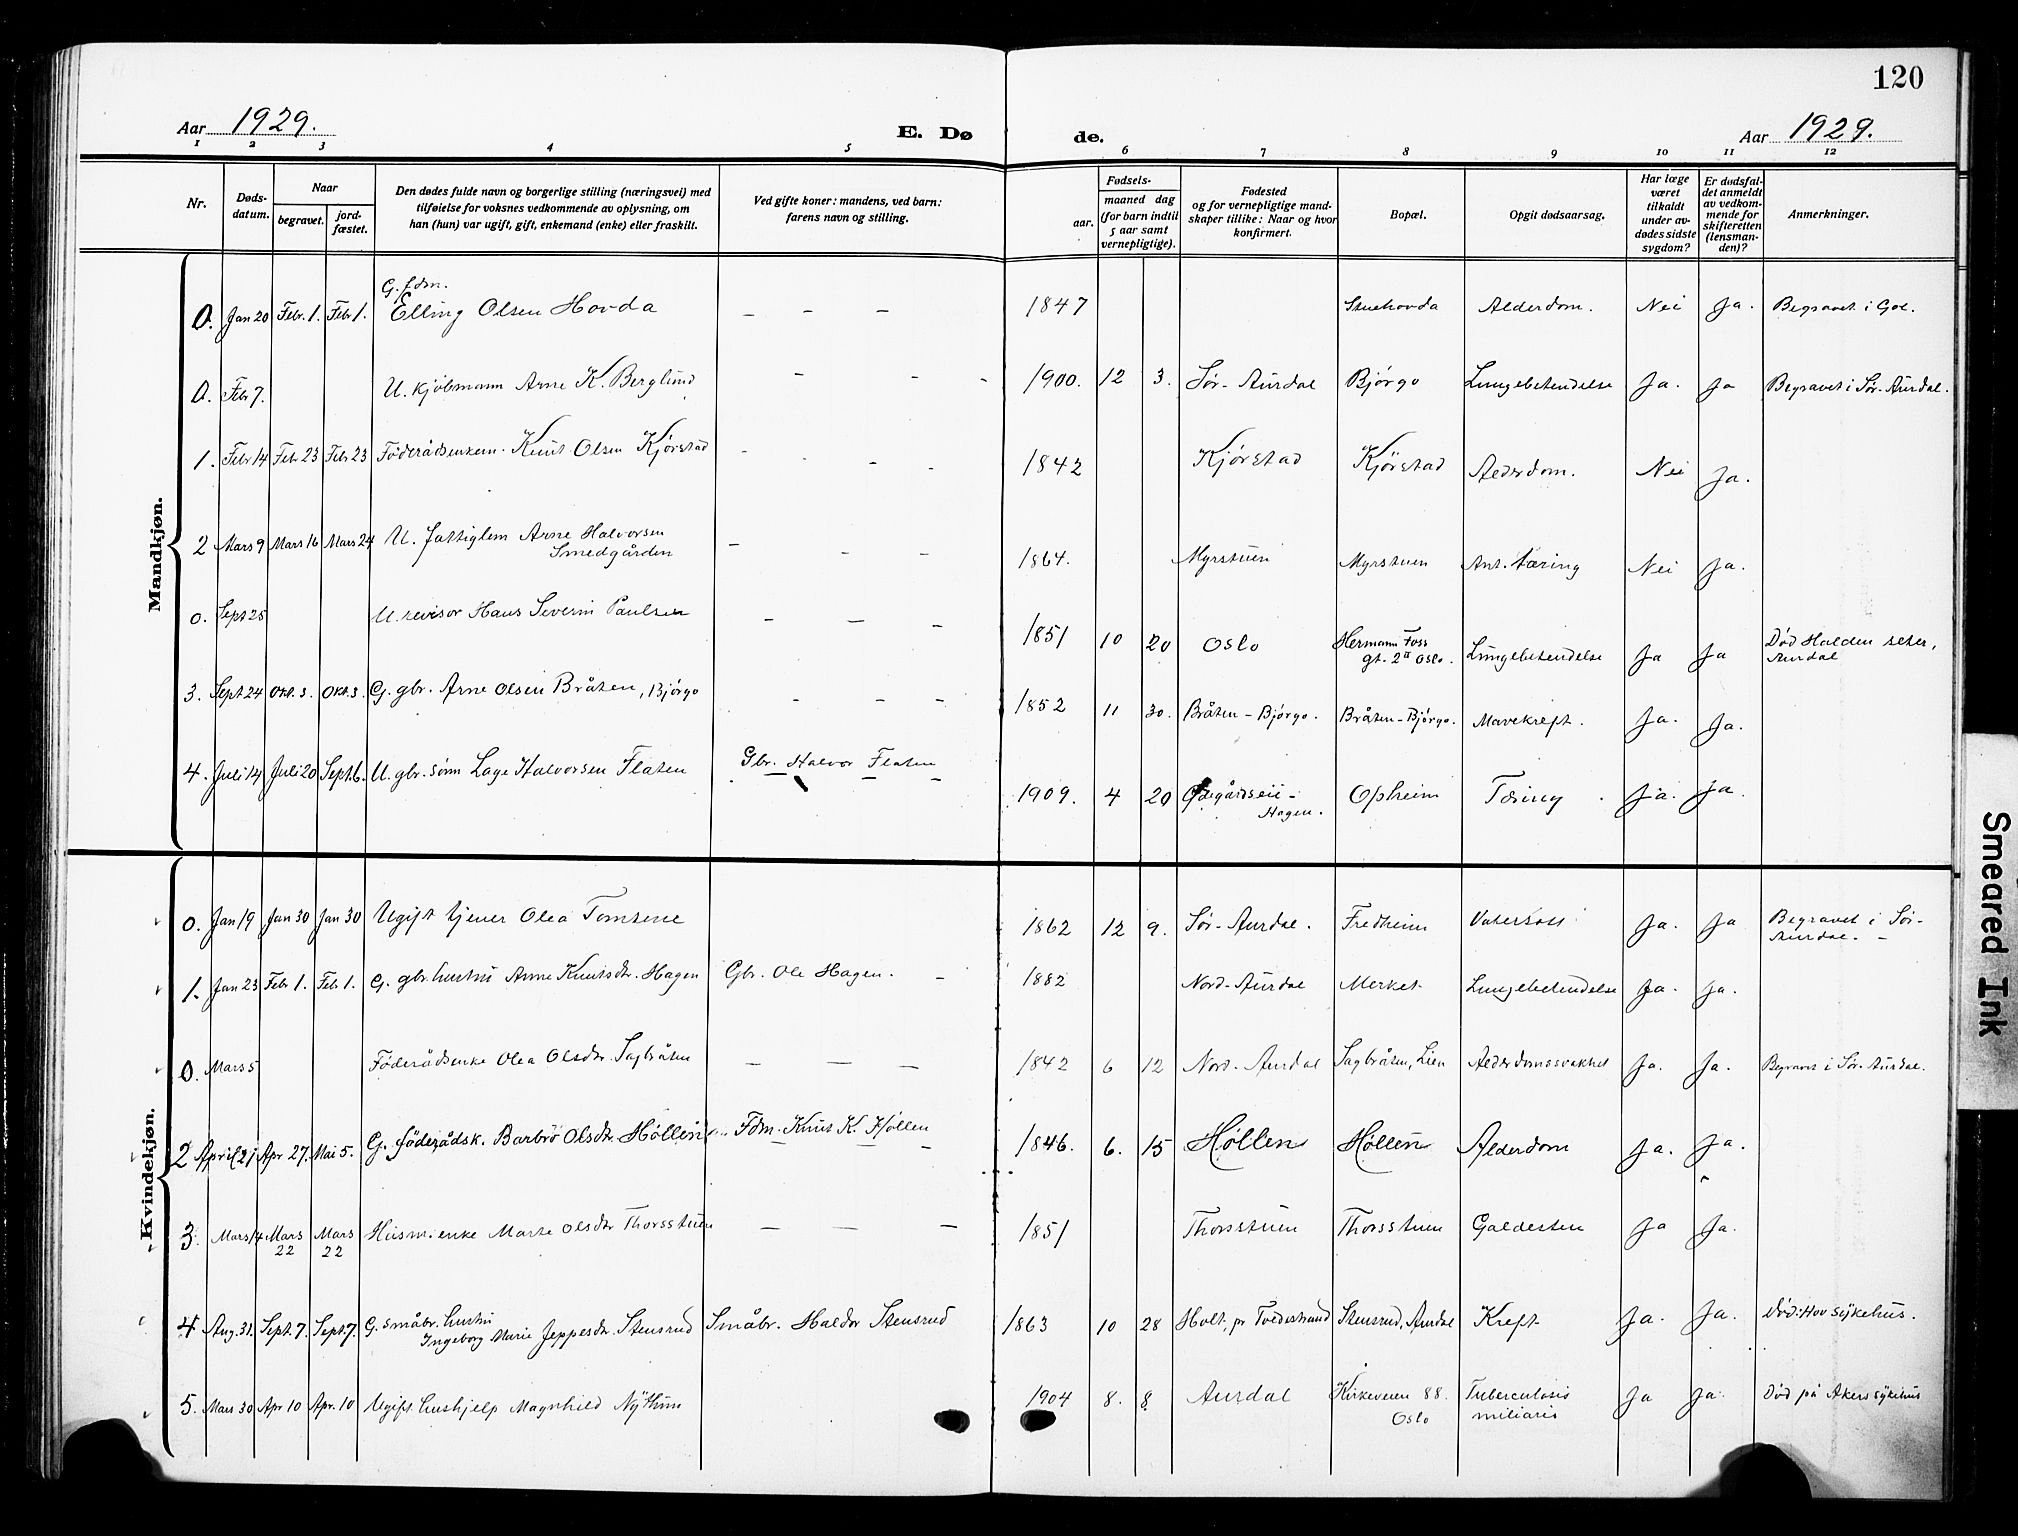 120
Aar 1929.
E. Dø
de.
Aar 1929.
1 2 3 4 5 6 7 8 9 10 11 12
Nr.
Døds-
datum.
Naar
begravet.
jord-
fæstet.
Den dødes fulde navn og borgerlige stilling (næringsvei) med
tilføielse for voksnes vedkommende av oplysning, om
han (hun) var ugift, gift, enkemand (enke) eller fraskilt.
Ved gifte koner: mandens, ved barn:
farens navn og stilling.
Fødsels-
aar.
maaned dag
(for barn indtil
5 aar samt
vernepligtige).
Fødested
og for vernepligtige mand-
skaper tillike: Naar og hvor
konfirmert.
Bopæl.
Opgit dødsaarsag.
Har læge
været
tilkaldt
under av-
dødes sidste
sygdom?
Er dødsfal-
det anmeldt
av vedkom-
mende for
skifteretten
(lensman-
den)?
Anmerkninger.
Mandkjøn.
G. fdm.
0. Jan 20 Febr. 1. Febr 1. Elling Olsen Hovda — — — 1847 Stuehovda Alderdom. Nei Ja. Begravet i Gol.
0. Febr 7. U. kjøbmann Arne K. Berglund — — — 1900. 12 3. Sør-Aurdal Bjørgo Lungebetendelse Ja. Ja Begravet i Sør-Aurdal.
1. Febr 14 Febr 23 Febr 23 Föderådsenkem. Knut Olsen Kjørstad — — — 1842 Kjørstad Kjörstad Alderdom. Nei Ja.
2 Mars 9 Mars 16 Mars 24 U. fattiglem Arne Halvorsen
Smedgården — — — 1864. Myrstuen Myrstuen Ant. tæring Nei Ja.
0. Sept 25 U. revisor Hans Severin Paulsen — — — 1851 10 20 Oslo Hermann Foss
gt. 2 II Oslo. Lungebetendelse Ja Ja Död Halden seter,
Aurdal
3. Sept. 24 Okt. 3. Okt. 3. G. gbr. Arne Olsen Bråten, Bjørgo — — — 1852 11 30. Bråten-Bjørgo. Bråten-Bjørgo. Mavekreft. Ja. Ja.
4. Juli 14 Juli 20 Sept. 6. U. gbr. sönn Lage Halvorsen Flaten Gbr. Halvor Flaten 1909. 4 20 Ødegårdseii-
Hagen. Opheim Tæring. Ja. Ja.
Kvindekjøn.
0. Jan 19 Jan 30 Jan 30 Ugift tjener Olea Tomsene 1862 12 9. Sør-Aurdal. Fredheim Vatersott Ja. Ja Begravet i Sör-
Aurdal. —
1. Jan 23 Febr 1. Febr 1. G. gbr. hustru Anne Knutsdtr. Hagen Gbr. Ole Hagen. — 1882 Nord-Aurdal Merket Lungebetendelse Ja. Ja.
0. Mars 5 Föderådsenke Olea Olsdtr. Sagbråten — — — 1842 6 12 Nord-Aurdal Sagbråten, Lien Alderdomssvakhet Ja. Ja. Begravet i Sör-Aurdal.
2 April 21 Apr 27. Mai 5. G. föderådsk. Barbro Olsdtr. Höllen Fdm. Knut K. Höllen 1846. 6. 15 Höllen Höllen Alderdom Ja. Ja.
3. Mars 14 Mars
22 Mars
22 Husm. enke Marte Olsdtr Thorsstuen — — — 1851 Thorsstuen Thorsstuen Galdesten Ja Ja.
4 Aug. 31. Sept. 7. Sept. 7 G. småbr. hustru
Ingeborg Marie Jeppesdtr. Stensrud Småbr. Haldor Stensrud 1863 10 28 Holt, pr Tvedestrand Stensrud, Aurdal Kreft Ja. Ja. Död: Hov sykehus.
5. Mars 30 Apr 10 Apr. 10 Ugift hushjelp Magnhild Nythun 1904 8. 8 Aurdal Kirkeveien 88.
Oslo Tuberculosis
miliaris Ja Ja. Död på Akers sykehus
Smeared Ink